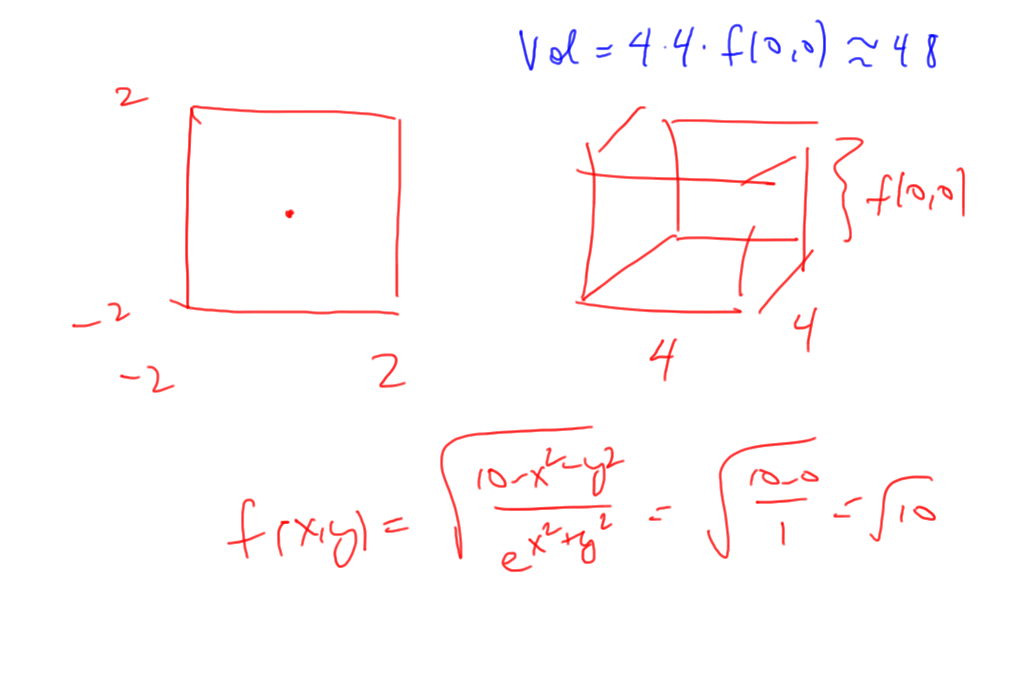 Vol = 4·4·f(0,0) ≈ 48
2
-2
-2 2
f(0,0)
4
4
f(x,y) = √((10-x²-y²)/(e^(x²+y²))) = √((10-0)/1) = √10